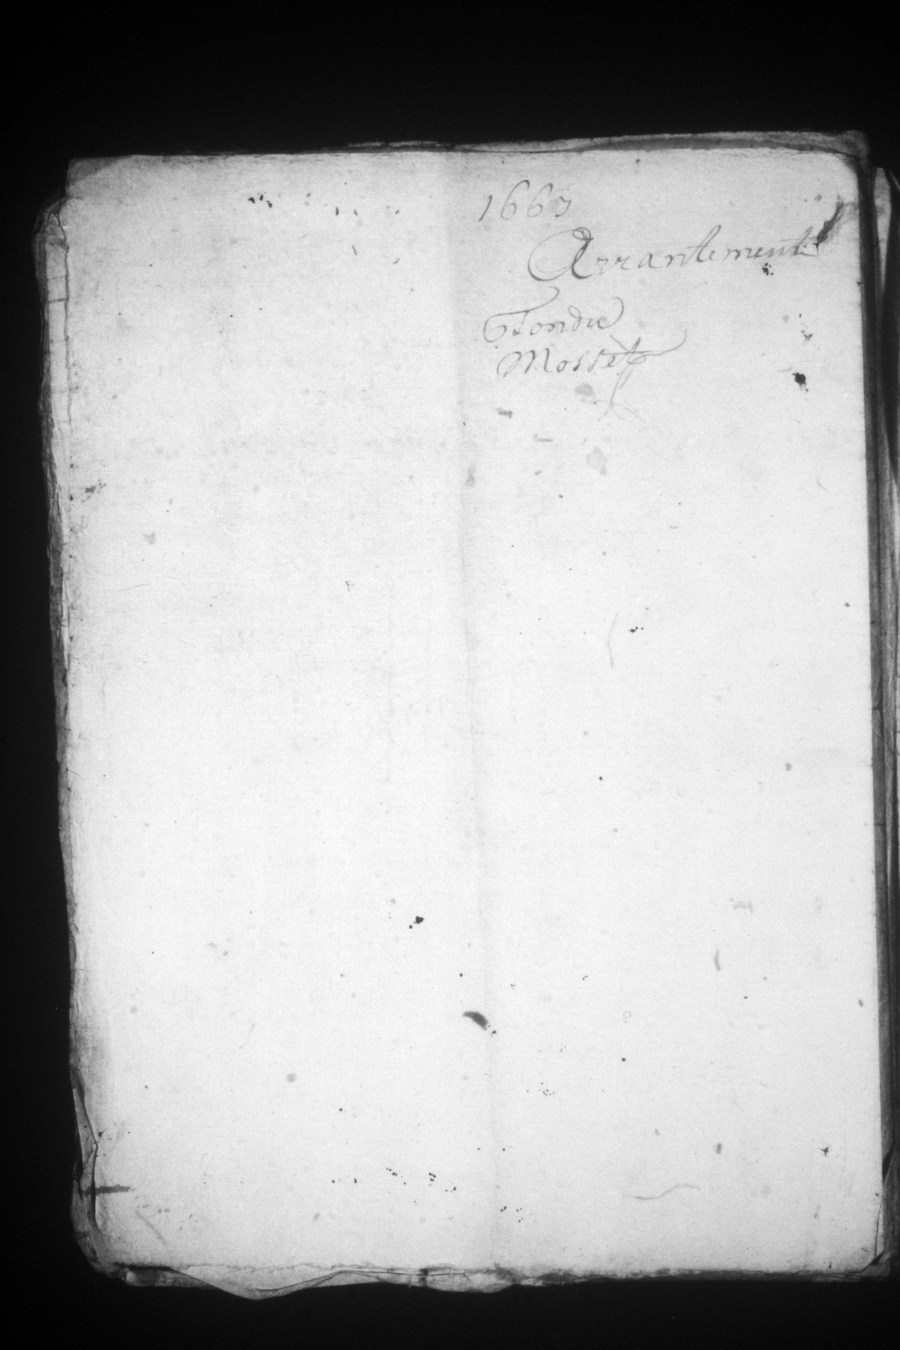 1667
Arrantement
Fondue
Mosset